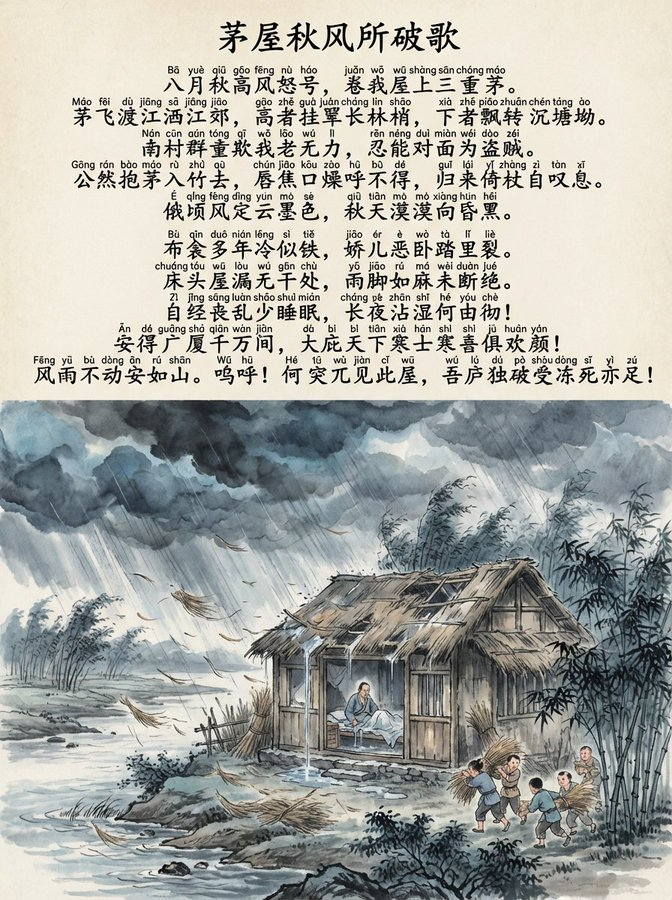 茅屋秋风所破歌
Bā yuè qiū gāo fēng nù háo juǎn wǒ wū shàng sān chóng máo
八月秋高风怒号，卷我屋上三重茅。
Máo fēi dù jiāng sǎ jiāng jiāo gāo zhě guà juàn cháng lín shāo xià zhě piāo zhuǎn chén táng ào
茅飞渡江洒江郊，高者挂罥长林梢，下者飘转沉塘坳。
Nán cūn qún tóng qī wǒ lǎo wú lì rěn néng duì miàn wéi dào zéi
南村群童欺我老无力，忍能对面为盗贼。
Gōng rán bào máo rù zhú qù chún jiāo kǒu zào hū bù dé guī lái yǐ zhàng zì tàn xī
公然抱茅入竹去，唇焦口燥呼不得，归来倚杖自叹息。
É qǐng fēng dìng yún mò sè qiū tiān mò mò xiàng hūn hēi
俄顷风定云墨色，秋天漠漠向昏黑。
Bù qīn duō nián lěng sì tiě jiāo ér è wò tà lǐ liè
布衾多年冷似铁，娇儿恶卧踏里裂。
chuáng tóu wū lòu wú gān chù yǔ jiǎo rú má wèi duàn jué
床头屋漏无干处，雨脚如麻未断绝。
Zì jīng sāng luàn shǎo shuì mián cháng yè zhān shī hé yóu chè
自经丧乱少睡眠，长夜沾湿何由彻！
Ān dé guǎng shà qiān wàn jiān dà bì tiān xià hán shì shì jù huān yán
安得广厦千万间，大庇天下寒士寒喜俱欢颜！
Fēng yǔ bù dòng ān rú shān Wū hū Hé tū wù jiàn cǐ wū wú lú dú pò shòu dòng sǐ yì zú
风雨不动安如山。呜呼！何突兀见此屋，吾庐独破受冻死亦足！